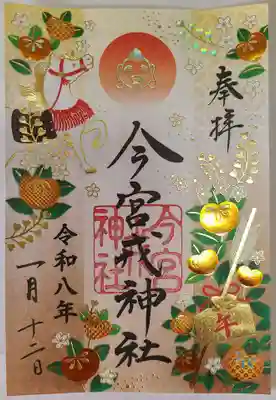 奉拝
今宮戎神社
今宮
神社
午
令和八年
一月十二日